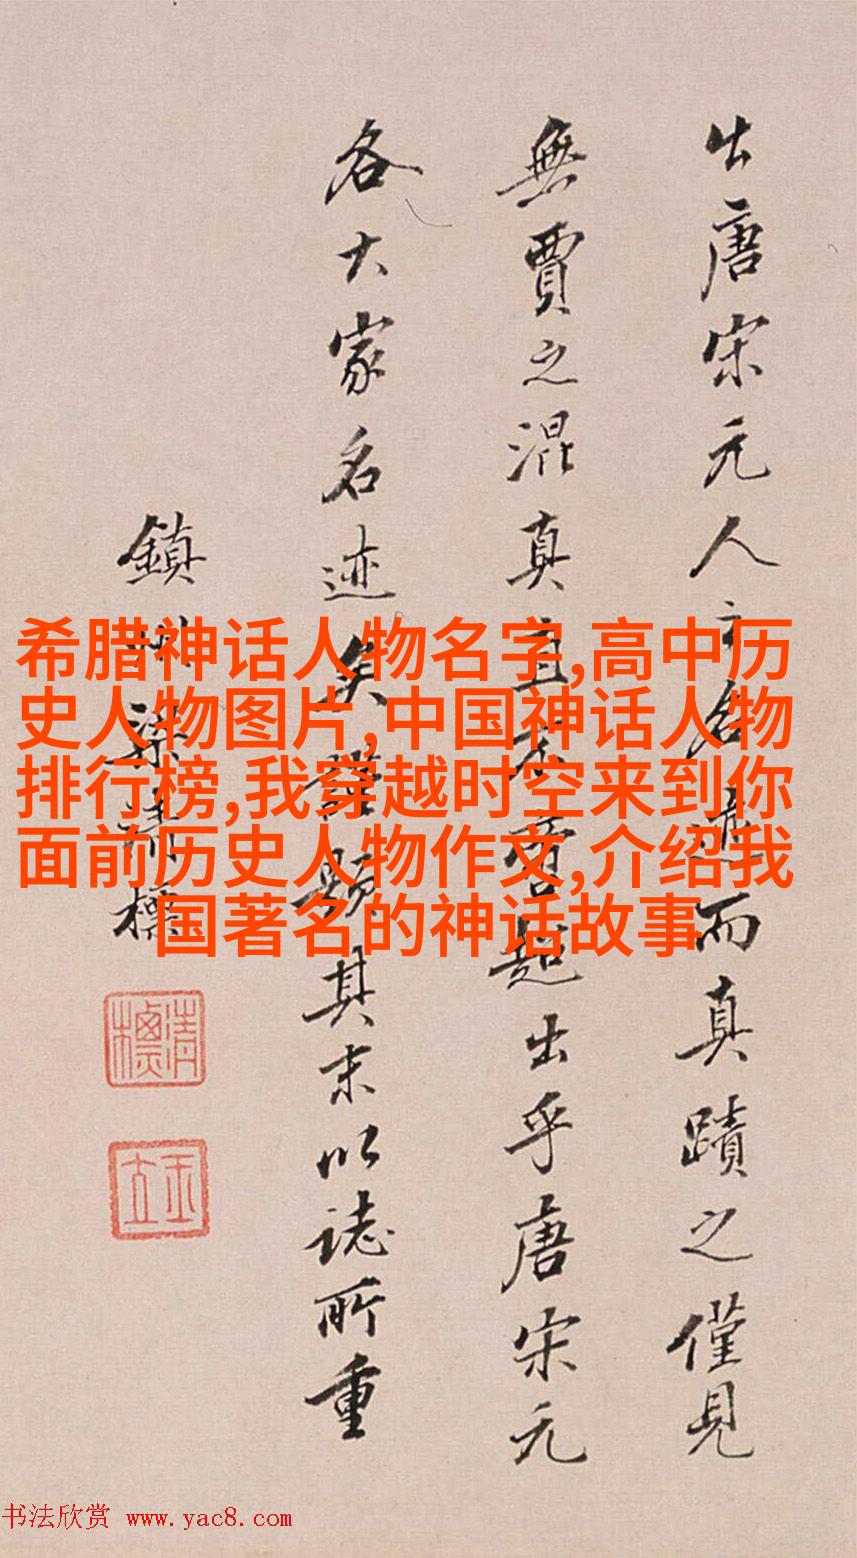 出唐宋元人之名迹而真蹟之僅見
無賈之混真直不啻超出乎唐宋元
各大家名迹矣謹題其末以誌所重
鎮州梁清標
清標
玉立
希腊神话人物名字,高中历
史人物图片,中国神话人物
排行榜,我穿越时空来到你
面前历史人物作文,介绍我
国著名的神话故事
书法欣赏 www.yac8.com